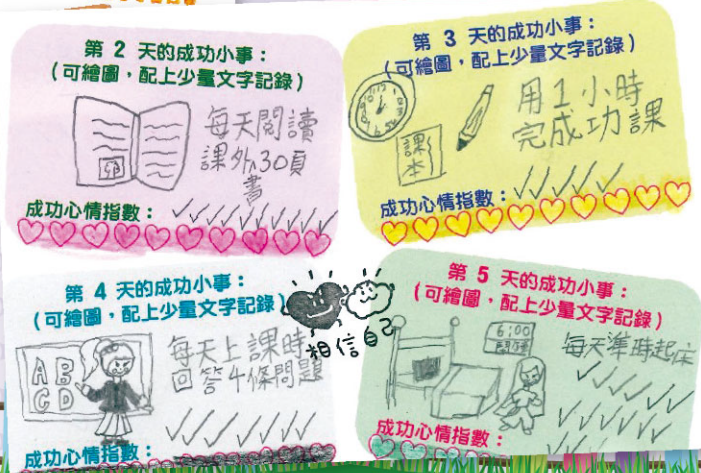 第 2 天的成功小事：
（可繪圖，配上少量文字記錄）
每天閱讀
課外30頁
書
成功心情指數：
第 3 天的成功小事：
（可繪圖，配上少量文字記錄）
課
本
用1小時
完成功課
成功心情指數：
第 4 天的成功小事：
（可繪圖，配上少量文字記錄）
AB
CD
每天上課時
回答4條問題
成功心情指數：
相信自己
第 5 天的成功小事：
（可繪圖，配上少量文字記錄）
6:00
每天準時起床
成功心情指數：